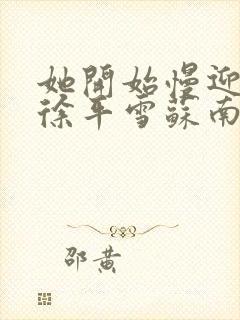 她開始慢迎
徐平雪蘇南
邵黃